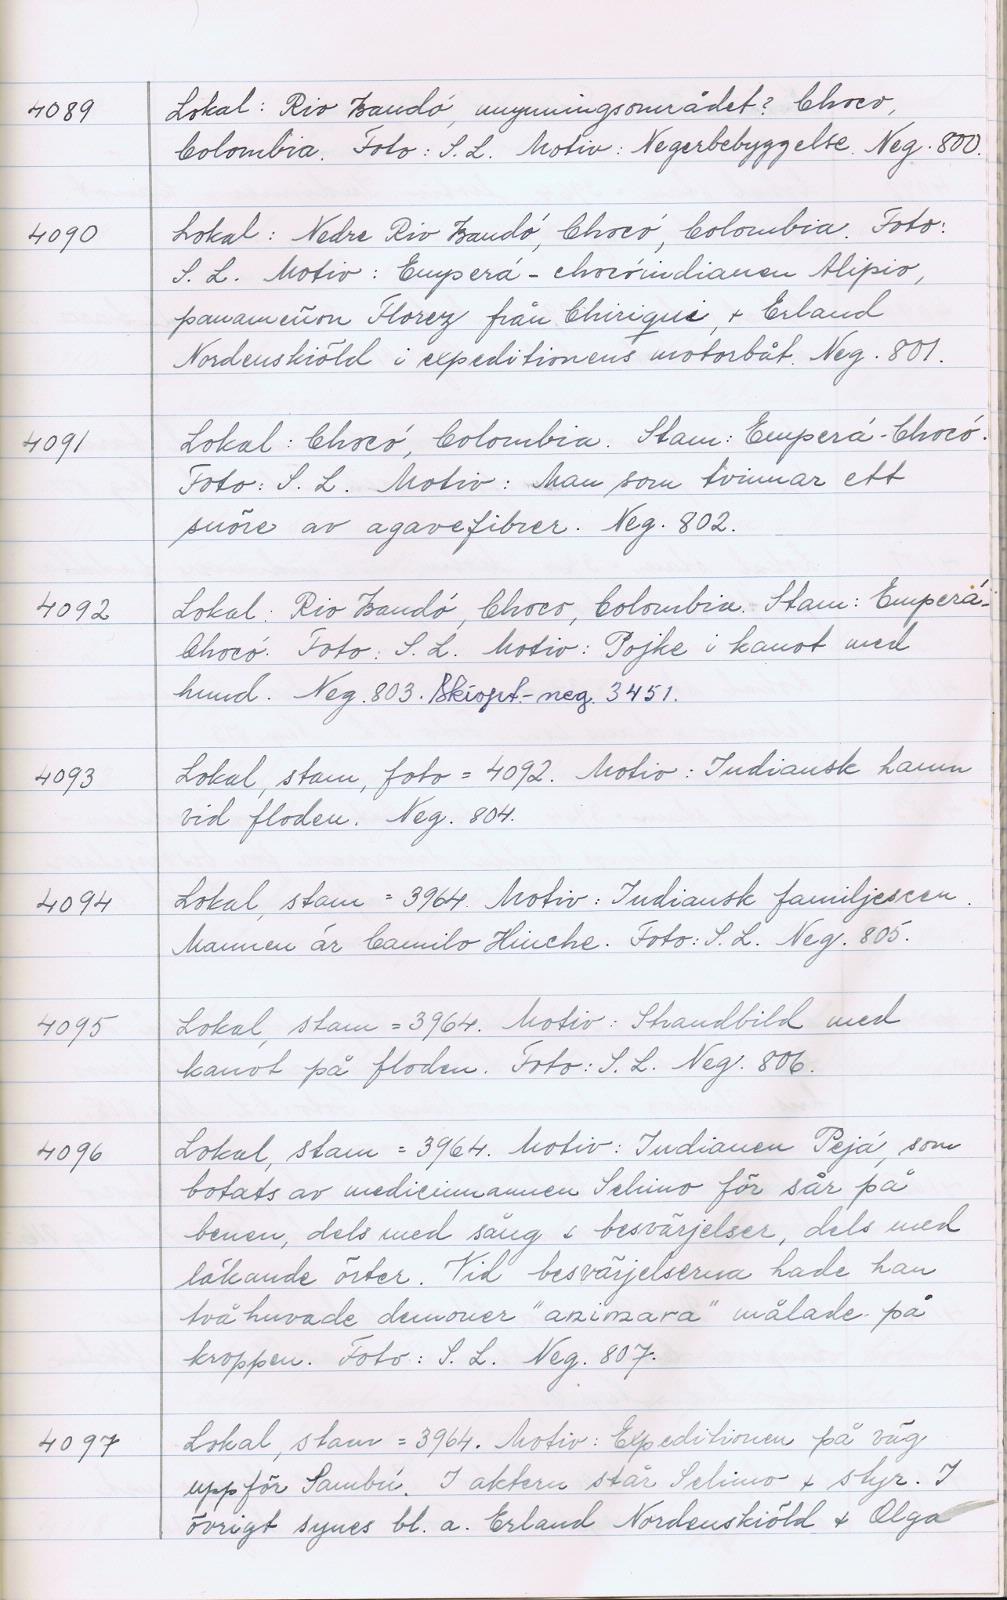 4089 Lokal: Rio Baudó, mynningsområdet? Choco,
Colombia. Foto: S. L. Motiv: Negerbebyggelse. Neg. 800.
4090 Lokal: Nedre Rio Baudó, Chocó, Colombia. Foto:
S. L. Motiv: Emperá-chocóindianen Alipio,
panameñon Florez från Chiriqui, & Erland
Nordenskiöld i expeditionens motorbåt. Neg. 801.
4091 Lokal: Chocó, Colombia. Stam: Emperá-Chocó.
Foto: S. L. Motiv: Man som tvinnar ett
snöre av agavefibrer. Neg. 802.
4092 Lokal: Rio Baudó, Choco, Colombia. Stam: Emperá-
Chocó. Foto: S. L. Motiv: Pojke i kanot med
hund. Neg. 803. Skiopt.-neg. 3451.
4093 Lokal, stam, foto = 4092. Motiv: Indiansk hamn
vid floden. Neg. 804.
4094 Lokal, stam = 3964. Motiv: Indiansk familjescen.
Mannen är Camilo Hinche. Foto: S. L. Neg. 805.
4095 Lokal, stam = 3964. Motiv: Strandbild med
kanot på floden. Foto: S. L. Neg. 806.
4096 Lokal, stam = 3964. Motiv: Indianen Pejá, som
botats av medicinmannen Selimo för sår på
benen, dels med sång & besvärjelser, dels med
läkande örter. Vid besvärjelserna hade han
tvåhuvade demoner "animara" målade på
kroppen. Foto: S. L. Neg. 807.
4097 Lokal, stam = 3964. Motiv: Expeditionen på väg
uppför Sambú. I aktern står Selimo & styr. I
övrigt synes bl. a. Erland Nordenskiöld & Olga